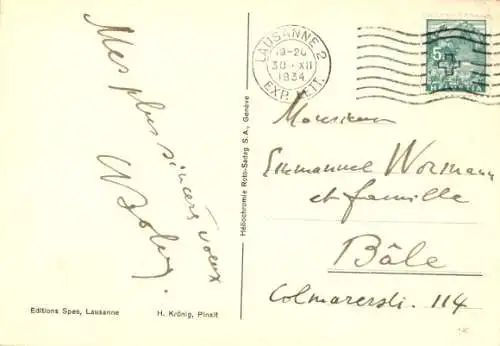 Mes plus sincères vœux
LAUSANNE 2
19-20
30·XII
1934
EXP. LETT.
5
HELVETIA
Monsieur
Emmanuel Wormann
et famille
Bâle
Colmarerstr. 114
Héliochromie Roto-Sadag S.A., Genève
Editions Spes, Lausanne
H. Krönig, Pinxit